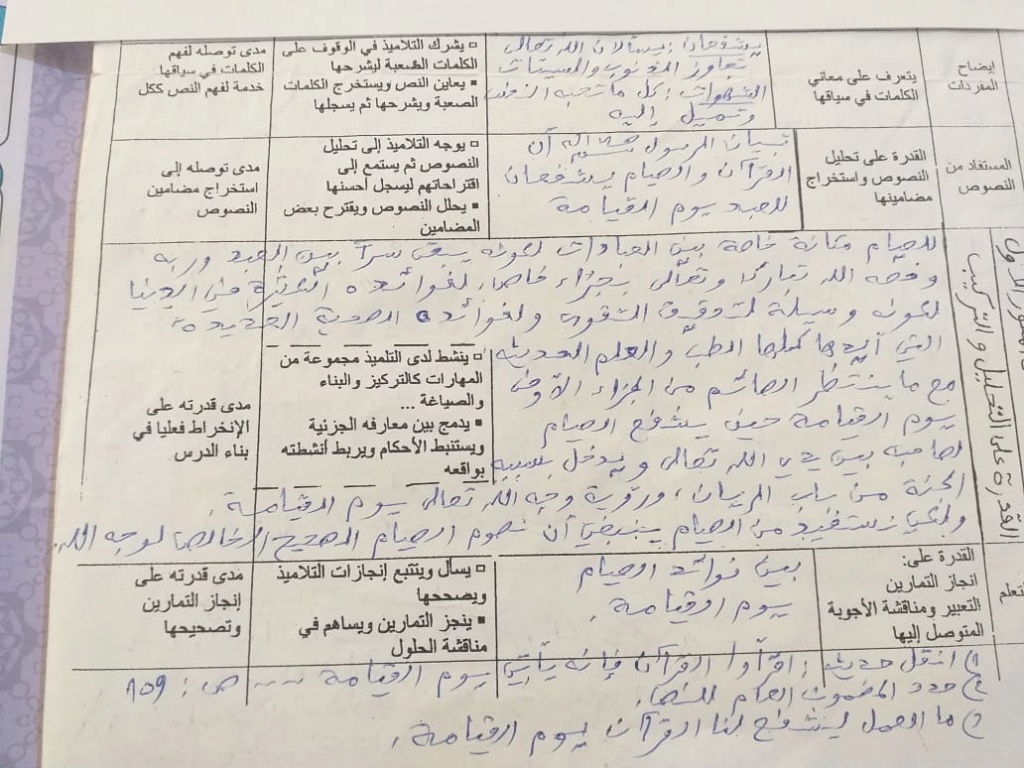 ايضاح
المفردات
يتعرف على معاني
الكلمات في سياقها
يشفعان: يسألان الله تعالى
تجاوز الذنوب والسيئات
الشهوات: كل ما تحبه النفس
وتميل إليه
▫ يشرك التلاميذ في الوقوف على
الكلمات الصعبة ليشرحها
▪ يعاين النص ويستخرج الكلمات
الصعبة ويشرحها ثم يسجلها
مدى توصله لفهم
الكلمات في سياقها
خدمة لفهم النص ككل
المستفاد من
النصوص
القدرة على تحليل
النصوص واستخراج
مضامينها
تبيان الرسول ﷺ أن
القرآن والصيام يشفعان
للعبد يوم القيامة
▫ يوجه التلاميذ إلى تحليل
النصوص ثم يستمع إلى
اقتراحاتهم ليسجل أحسنها
▪ يحلل النصوص ويقترح بعض
المضامين
مدى توصله إلى
استخراج مضامين
النصوص
القدرة على التحليل والتركيب
للصيام مكانة خاصة بين العبادات لكونه يبقى سرا بين العبد وربه
وخصه الله تبارك وتعالى بجزاء خاص، لفوائده الكثيرة في الدنيا
لكونه وسيلة لتحقيق التقوى ولفوائده الصحية العديدة
التي أيدها كلها الطب والعلم الحديث
مع ما ينتظر الصائم من الجزاء الأوفى
يوم القيامة حين يشفع الصيام
لصاحبه بين يدي الله تعالى ويدخل بسببه
الجنة من باب الريان، ورؤية وجه الله تعالى يوم القيامة.
ولكي نستفيد من الصيام ينبغي أن نصوم الصيام الصحيح الخالص لوجه الله.
▫ ينشط لدى التلميذ مجموعة من
المهارات كالتركيز والبناء
والصياغة ...
▪ يدمج بين معارفه الجزئية
ويستنبط الأحكام ويربط أنشطته
بواقعه
مدى قدرته على
الإنخراط فعليا في
بناء الدرس
تعلم
القدرة على:
انجاز التمارين
التعبير ومناقشة الأجوبة
المتوصل إليها
بين فوائد الصيام
يوم القيامة.
▫ يسأل ويتتبع إنجازات التلاميذ
ويصححها
▪ ينجز التمارين ويساهم في
مناقشة الحلول
مدى قدرته على
إنجاز التمارين
وتصحيحها
انقل حديث: اقرأوا القرآن فإنه يأتي يوم القيامة ... ص: 159
حدد المضمون العام للنص.
ما العمل ليشفع لنا القرآن يوم القيامة.